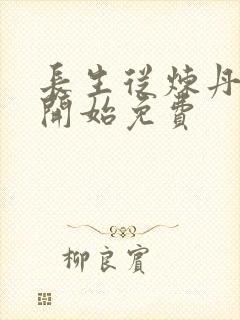 長生從煉丹
開始免費
柳良賓